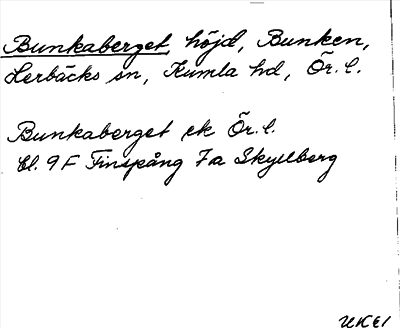 Bunkaberget, höjd, Bunken,
Lerbäcks sn, Kumla hd, Ör. l.
Bunkaberget ek Ör. l.
bl. 9 F Finspång 7 a Skyllberg